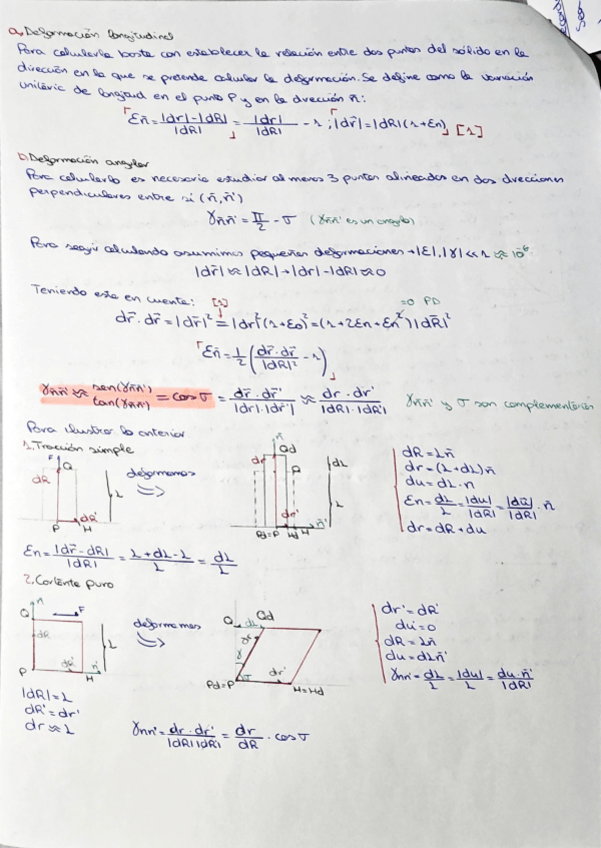 a) Deformación longitudinal
Para calcularla basta con establecer la relación entre dos puntos del sólido en la
dirección en la que se pretende calcular la deformación. Se define como la variación
unitaria de longitud en el punto P y en la dirección n̄:
εn̄ = |dr|-|dR| / |dR| = |dr| / |dR| - 1 ; |dr̄| = |dR|(1+εn) [1]
b) Deformación angular
Para calcularlo es necesario estudiar al menos 3 puntos alineados en dos direcciones
perpendiculares entre sí (n̄, n̄')
γn̄n̄' = π/2 - σ (γn̄n̄' es un angulo)
Para seguir calculando asumimos pequeñas deformaciones → |ε|, |γ| << 1 ≈ 10⁻⁶
|dr̄| ≈ |dR| → |dr| - |dR| ≈ 0
Teniendo esto en cuenta: [1] =0 PD
dr̄ · dr̄ = |dr̄|² = |dR|²(1+εn)² = (1+2εn+εn²)|dR̄|²
εn̄ = 1/2 (dr̄ · dr̄ / |dR|² - 1)
γn̄n̄' ≈ sen(γn̄n̄') / tan(γn̄n̄') = cos σ = dr̄ · dr̄' / |dr|·|dr'| ≈ dr · dr' / |dR|·|dR'| γn̄n̄' y σ son complementarios
Para ilustrar lo anterior
1. Tracción simple
F n̄ Q dR P dR' H L
deformamos ⇒
n̄ Qd dr Q dr' Pd=P Hd H n̄' dL L
dR = Ln̄
dr = (L+dL)n̄
du = dL · n
εn = dL/L = |du|/|dR| = |dū|/|dR| · n̄
dr = dR + du
εn = |dr̄ - dR| / |dR| = L+dL-L / L = dL/L
2. Cortante puro
Q n F dR P dR' H n' L
deformamos ⇒
Q dL Qd γ σ dr' Pd=P H=Hd
dr' = dR'
du' = 0
dR = Ln̄
du = dLn̄'
γnn' = dL/L = |du|/L = du·n̄' / |dR|
|dR| = L
dR' = dr'
dr ≈ L
γnn' = dr · dr' / |dR||dR'| = dr/dR · cos σ